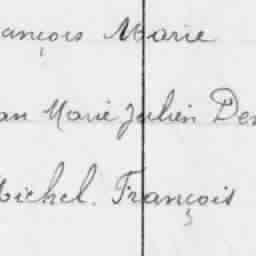 ançois Marie
an Marie Julien De
Michel. François